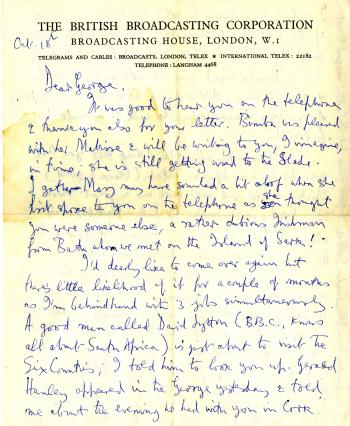 THE BRITISH BROADCASTING CORPORATION
BROADCASTING HOUSE, LONDON, W.1
TELEGRAMS AND CABLES: BROADCASTS, LONDON, TELEX ★ INTERNATIONAL TELEX: 22182
TELEPHONE: LANGHAM 4468
Oct. 18th
Dear George,
It was good to hear you on the telephone
& thank you also for your letter. Bimba was pleased
with her Matisse & will be writing to you, I imagine,
in time, she is still getting used to the Slade.
I gather Mary may have sounded a bit aloof when she
first spoke to you on the telephone as she thought
you were someone else, a rather dubious Irishman
from Bath whom we met on the Island of Sark!
I'd dearly like to come over again but
there's little likelihood of it for a couple of months
as I'm behindhand with 3 jobs simultaneously.
A good man called David Lytton (B.B.C., knows
all about South Africa) is just about to visit the
Six Counties; I told him to look you up. Gerald
Hanley appeared in the George yesterday & told
me about the evening he had with you in Cork.